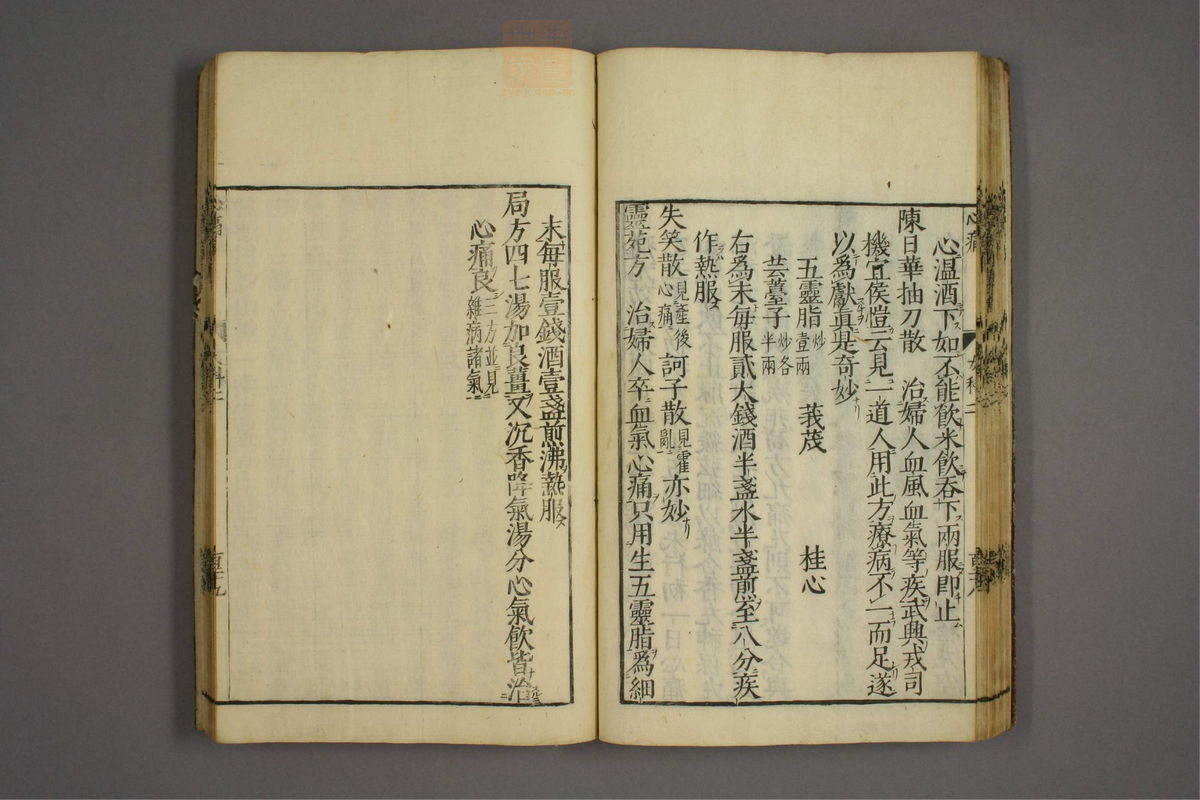 心痛
心温酒下如不能飲米飲吞下兩服即止
陳日華抽刀散　治婦人血風血氣等疾武興戎司
機宜侯愷云見一道人用此方療病不一而足遂
以爲獻真是奇妙
五靈脂炒壹兩　莪茂　桂心
芸薹子炒各半兩
右爲末每服貳大錢酒半盞水半盞煎至八分疾
作熱服
失笑散見產後心痛　訶子散見霍亂　亦妙
靈苑方　治婦人卒血氣心痛只用生五靈脂爲細
末每服壹錢酒壹盞煎沸熱服
局方四七湯加良薑又沉香降氣湯分心氣飲皆治
心痛良三方並見雜病諸氣